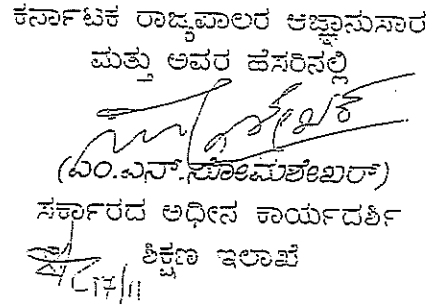 ಕರ್ನಾಟಕ ರಾಜ್ಯಪಾಲರ ಆಜ್ಞಾನುಸಾರ
ಮತ್ತು ಅವರ ಹೆಸರಿನಲ್ಲಿ
(ಎಂ.ಎನ್.ಸೋಮಶೇಖರ್)
ಸರ್ಕಾರದ ಅಧೀನ ಕಾರ್ಯದರ್ಶಿ
ಶಿಕ್ಷಣ ಇಲಾಖೆ
17/11